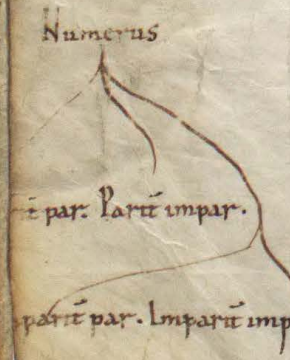 Numerus
par. Parit̄ impar.
parit̄ par. Imparit̄ imp